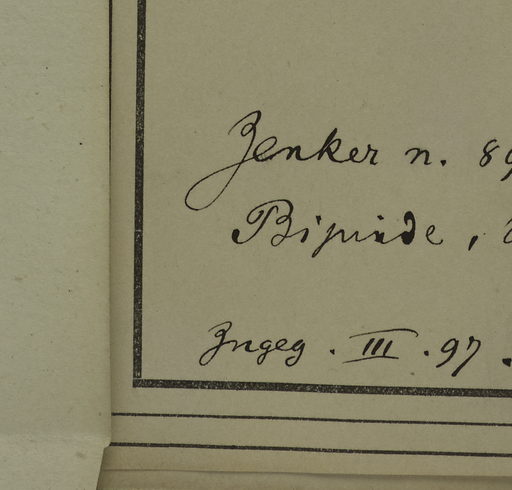 Zenker n. 89
Bipinde,
Zngeg. III. 97.